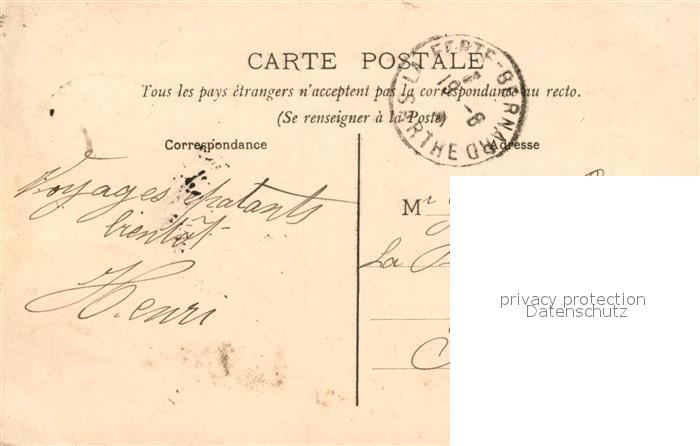 CARTE POSTALE
Tous les pays étrangers n'acceptent pas la correspondance au recto.
(Se renseigner à la Poste)
LA FERTE-BERNARD
SARTHE
Correspondance
Adresse
Voyages épatants
bientôt
Henri
Mr
La
privacy protection
Datenschutz